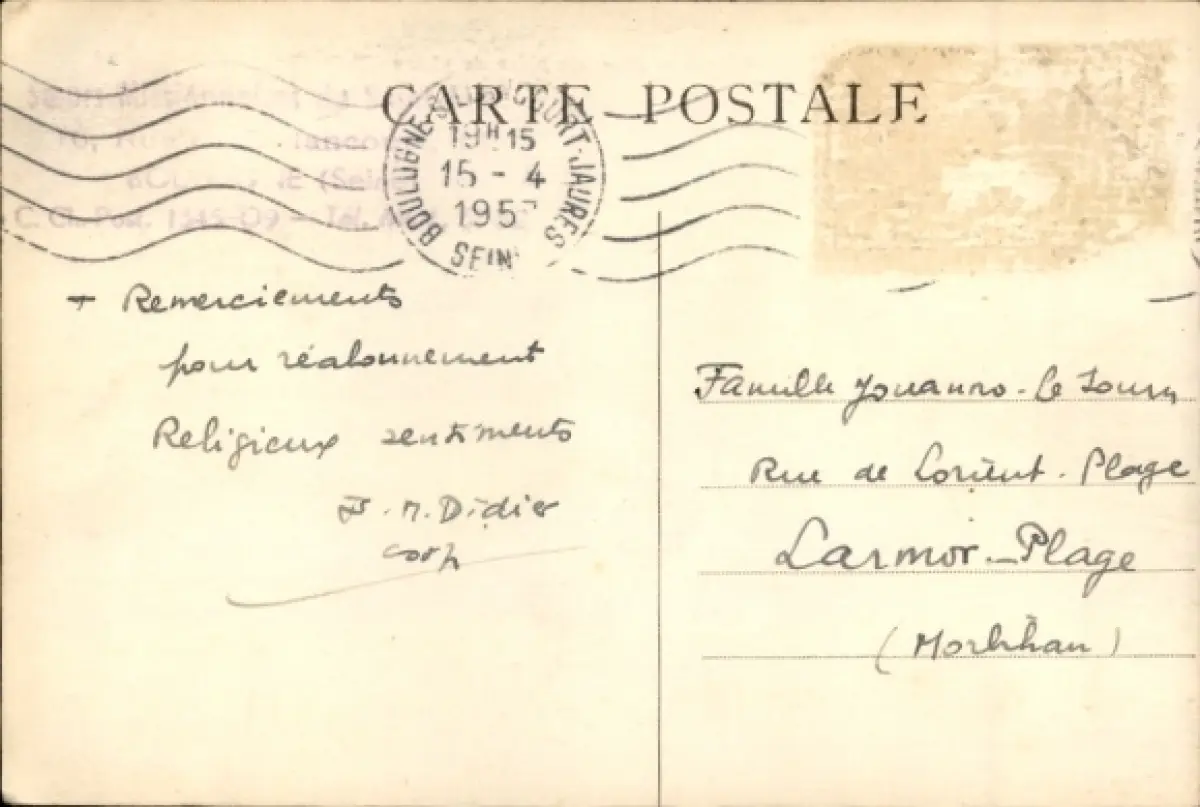 CARTE POSTALE
BOULOGNE-BILLANCOURT-JAURES
19H15
15 - 4
195
SEINE
(Sei
C. Ch. Post.
+ Remerciements
pour réabonnement
Religieux sentiments
F. M. Didier
Famille Jouanno - Le
Rue de Lorient - Plage
Larmor-Plage
(Morbihan)